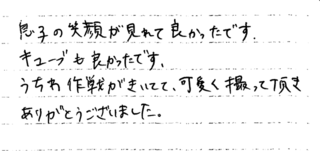 息子の笑顔が見れて良かったです.
キューブも良かったです.
うちわ作戦がきいてて、可愛く撮って頂き
ありがとうございました。